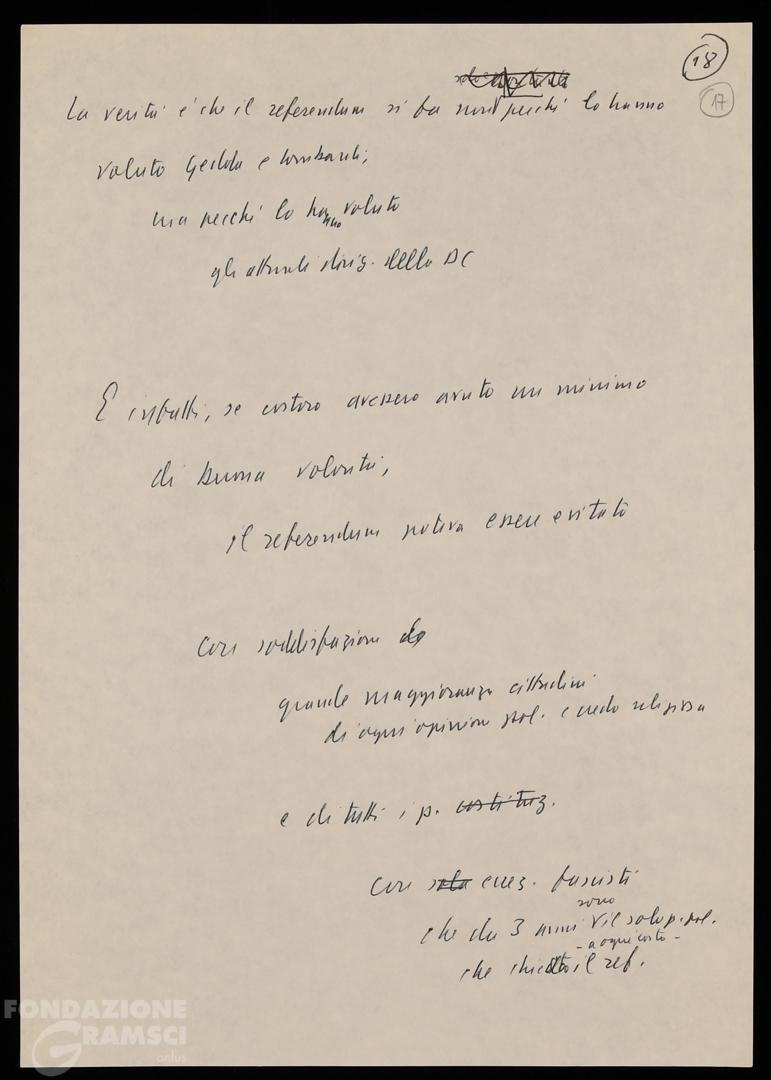 18
17
La verità è che il referendum si fa non perché lo hanno
voluto Gedda e Lombardi;
ma perché lo hanno voluto
gli attuali dirig. della DC
E infatti, se costoro avessero avuto un minimo
di buona volontà,
il referendum poteva essere evitato
con soddisfazione
grande maggioranza cittadini
di ogni opinione pol. e credo religioso
e di tutti i p. costituz.
con sola ecces. fascisti
sono
che da 3 anni il solo p. pol.
- a ogni costo -
che il ref.
FONDAZIONE
GRAMSCI
onlus